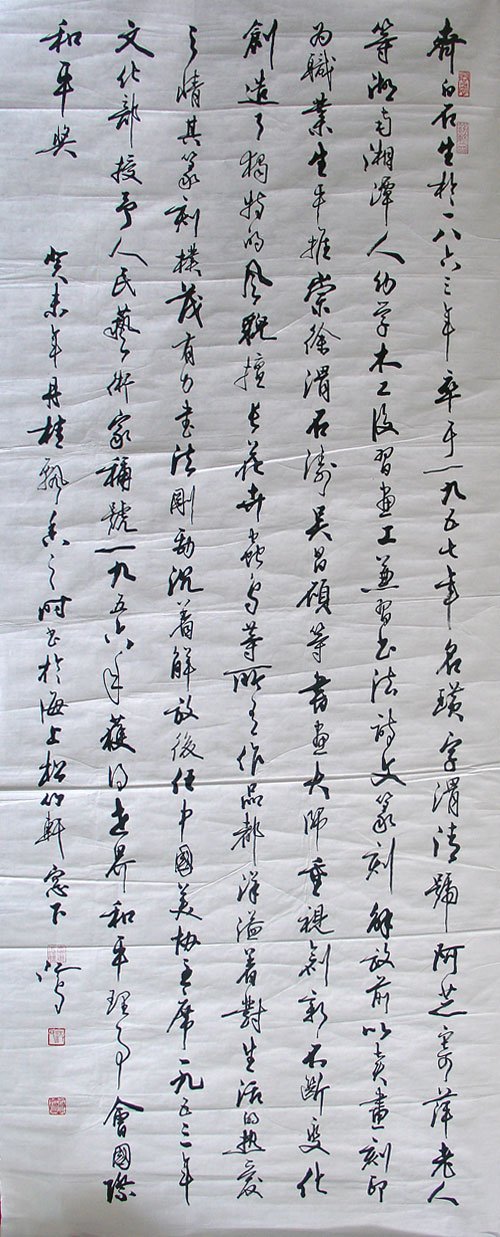 齊白石生於一八六三年卒于一九五七年名璜字渭清號阿芝寄萍老人
等湖南湘潭人幼学木工後習畫工兼習书法詩文篆刻解放前以卖畫刻印
为職業生平推崇徐渭石涛吴昌硕等書画大师重視創新不断变化
創造了獨特的风貌擅长花卉虫鸟等所有作品都洋溢着對生活的热爱
之情其篆刻樸茂有力书法剛勁沉着解放後任中國美协主席一九五三年
文化部授予人民藝術家稱號一九五六年獲得世界和平理事會國際
和平奖
癸未年丹桂飄香之时书於海上松竹軒窓下